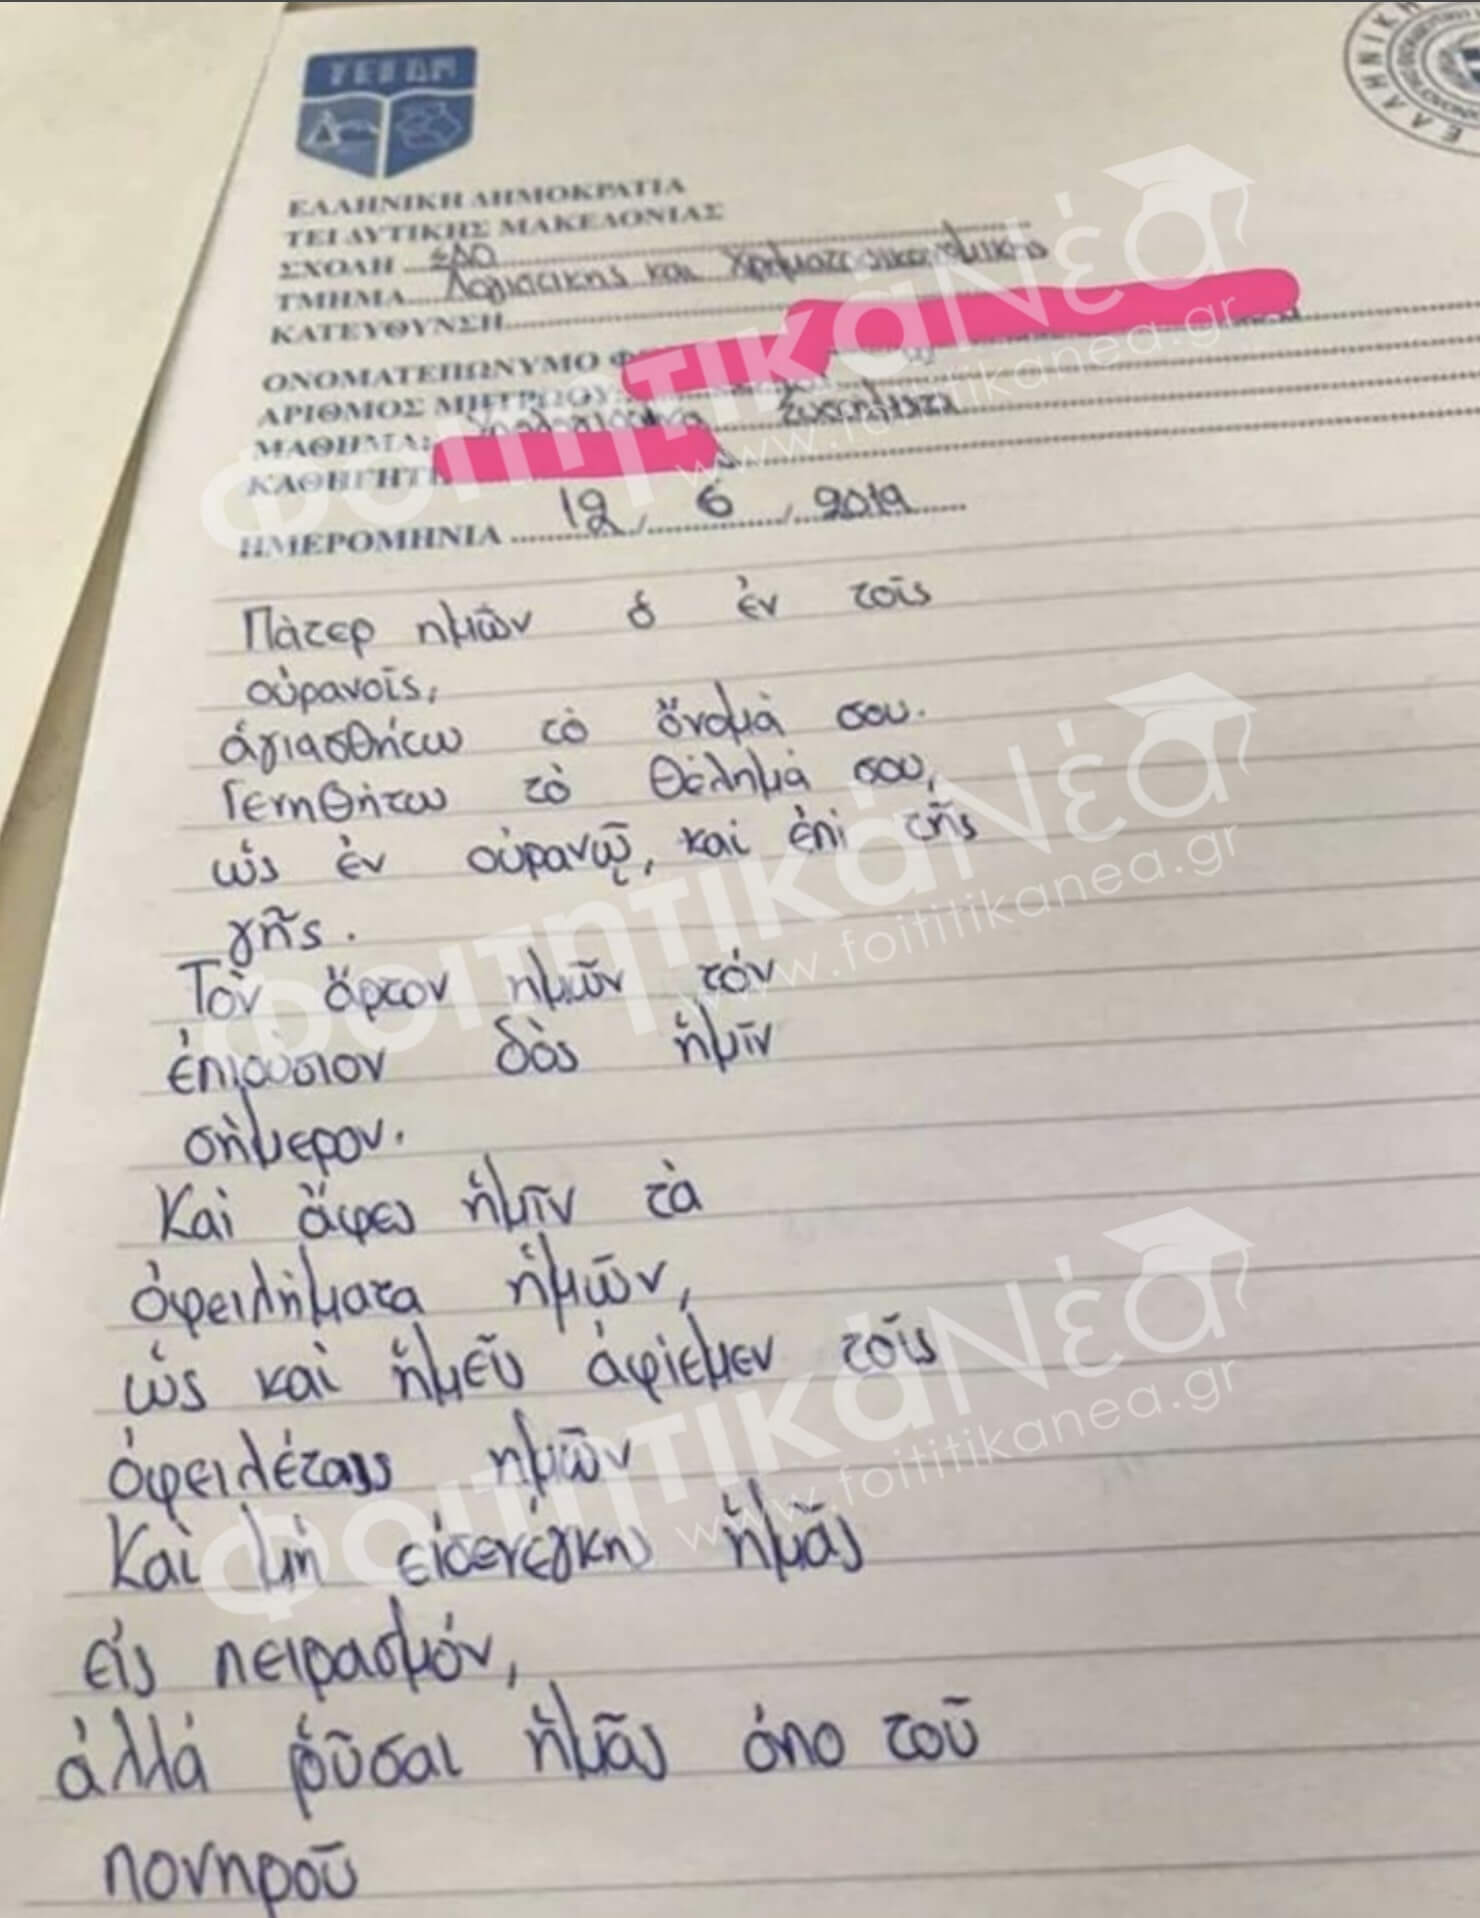 ΤΕΙ ΔΜ
ΕΛΛΗΝΙΚΗ
ΕΛΛΗΝΙΚΗ ΔΗΜΟΚΡΑΤΙΑ
ΤΕΙ ΔΥΤΙΚΗΣ ΜΑΚΕΔΟΝΙΑΣ
ΣΧΟΛΗ ΣΔΟ
ΤΜΗΜΑ Λογιστικης και Χρηματοοικονομικης
ΚΑΤΕΥΘΥΝΣΗ
ΟΝΟΜΑΤΕΠΩΝΥΜΟ
ΑΡΙΘΜΟΣ ΜΗΤΡΩΟΥ
ΜΑΘΗΜΑ: Συστήματα
ΚΑΘΗΓΗΤ
ΗΜΕΡΟΜΗΝΙΑ 12/6/2019
Πὰτερ ημῶν ὁ ἐν τοῖς
οὐρανοῖς,
ἁγιασθήτω τὸ ὄνομὰ σου.
Γενηθήτω τὸ θέλημά σου,
ὡς ἐν οὐρανῷ, καὶ ἐπὶ τῆς
γῆς.
Τὸν ἄρτον ημῶν τόν
ἐπιούσιον δὸς ἡμῖν
σήμερον.
Καὶ ἄφες ἡμῖν τὰ
ὀφειλήματα ἡμῶν,
ὡς καὶ ἡμεῖς ἀφίεμεν τοῖς
ὀφειλέταις ημῶν
Καὶ μὴ εἰσενέγκης ἡμᾶς
εἰς πειρασμόν,
ἀλλά ῥῦσαι ἡμᾶς ἀπο τοῦ
πονηροῦ
ΦοιτητικάΝέα
www.foititikanea.gr
ΦοιτητικάΝέα
www.foititikanea.gr
ΦοιτητικάΝέα
www.foititikanea.gr